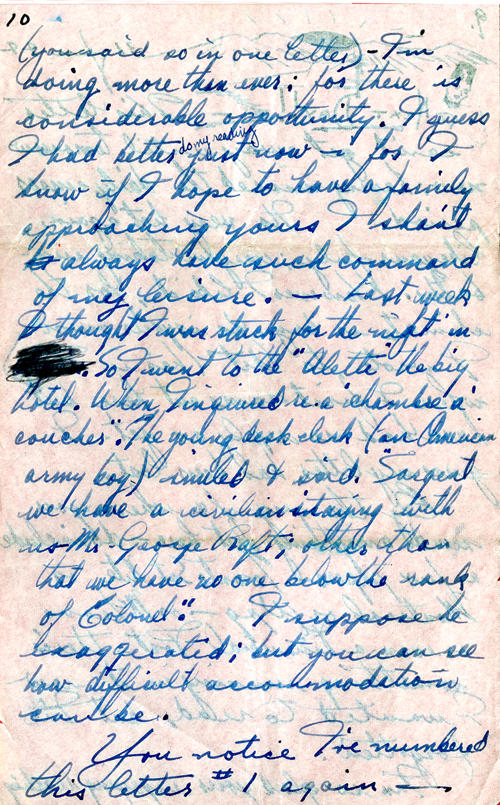 10
(you said so in one letter) - I'm
doing more than ever; for there is
considerable opportunity. I guess
do my reading
I had better just now — for I
know if I hope to have a family
approaching yours I shan't
always have such command
of my leisure. — Last week
I thought I was stuck for the night in
. So I went to the "Aletti" the big
hotel. When I inquired re. a "chambre a
coucher". The young desk clerk (an American
army boy) smiled & said. "Sargent
we have a civilian staying with
us Mr. George Raft; other than
that we have no one below the rank
of Colonel". I suppose he
exaggerated; but you can see
how difficult accommodation
can be.
You notice I've numbered
this letter #1 again —